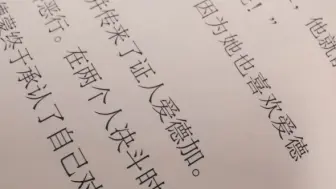 ，他就
吧！”
因为她也喜欢爱德
并传来了证人爱德加。
恶行。在两个人决斗时
德蒙终于承认了自己对